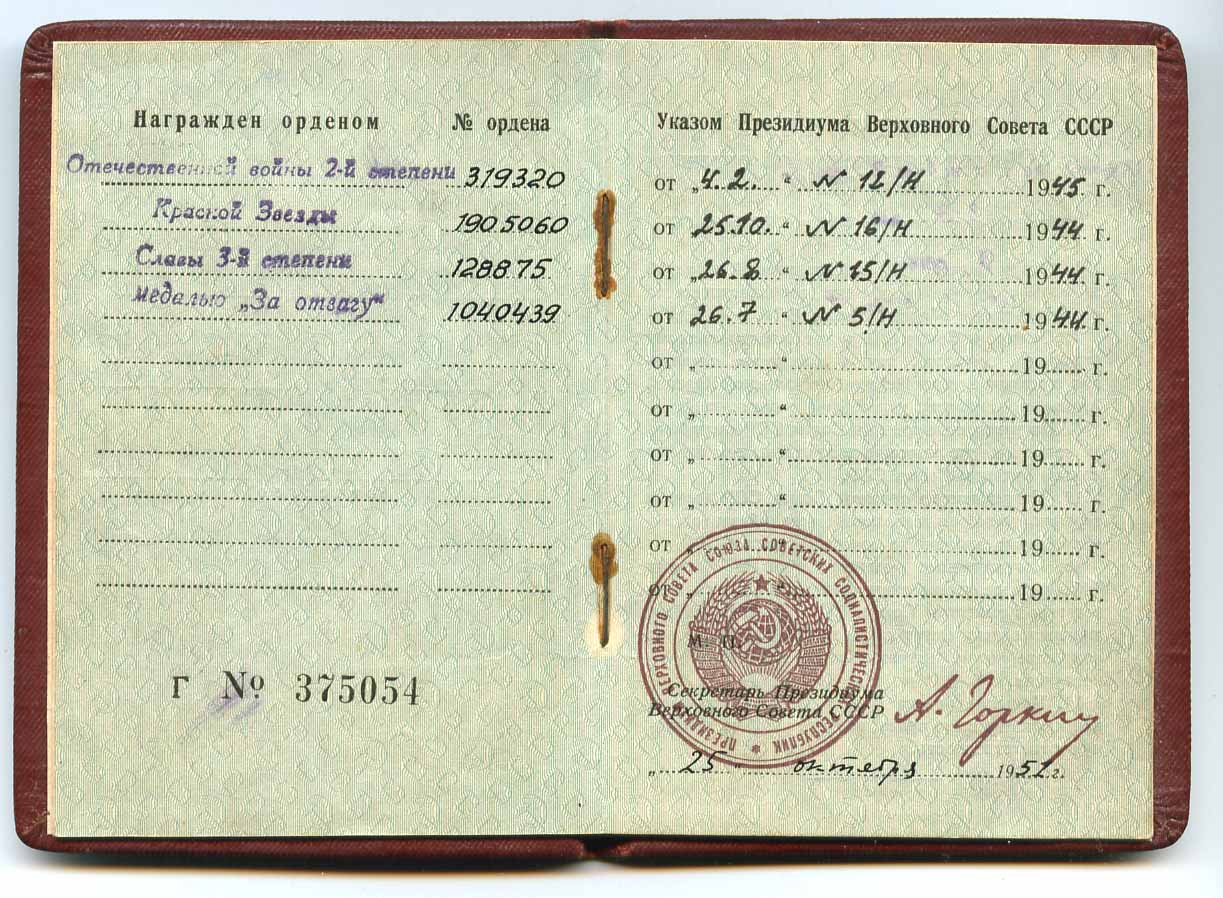 Награжден орденом № ордена
Отечественной войны 2-й степени 319320
Красной Звезды 1905060
Славы 3-й степени 128875
медалью „За отвагу“ 1040439
Г № 375054
Указом Президиума Верховного Совета СССР
от „4.2.“ N 12/Н 1945 г.
от 25.10.“ N 16/Н 1944 г.
от „26.8“ N 15/Н 1944 г.
от 26.7“ N 5/Н 1944 г.
от „ “ 19 г.
от „ “ 19 г.
от „ “ 19 г.
от „ “ 19 г.
от „ “ 19 г.
от „ “ 19 г.
ПРЕЗИДИУМ ВЕРХОВНОГО СОВЕТА СОЮЗА СОВЕТСКИХ СОЦИАЛИСТИЧЕСКИХ РЕСПУБЛИК
М. П.
Секретарь Президиума
Верховного Совета СССР А. Горкин
„ 25 октября 1951 г.